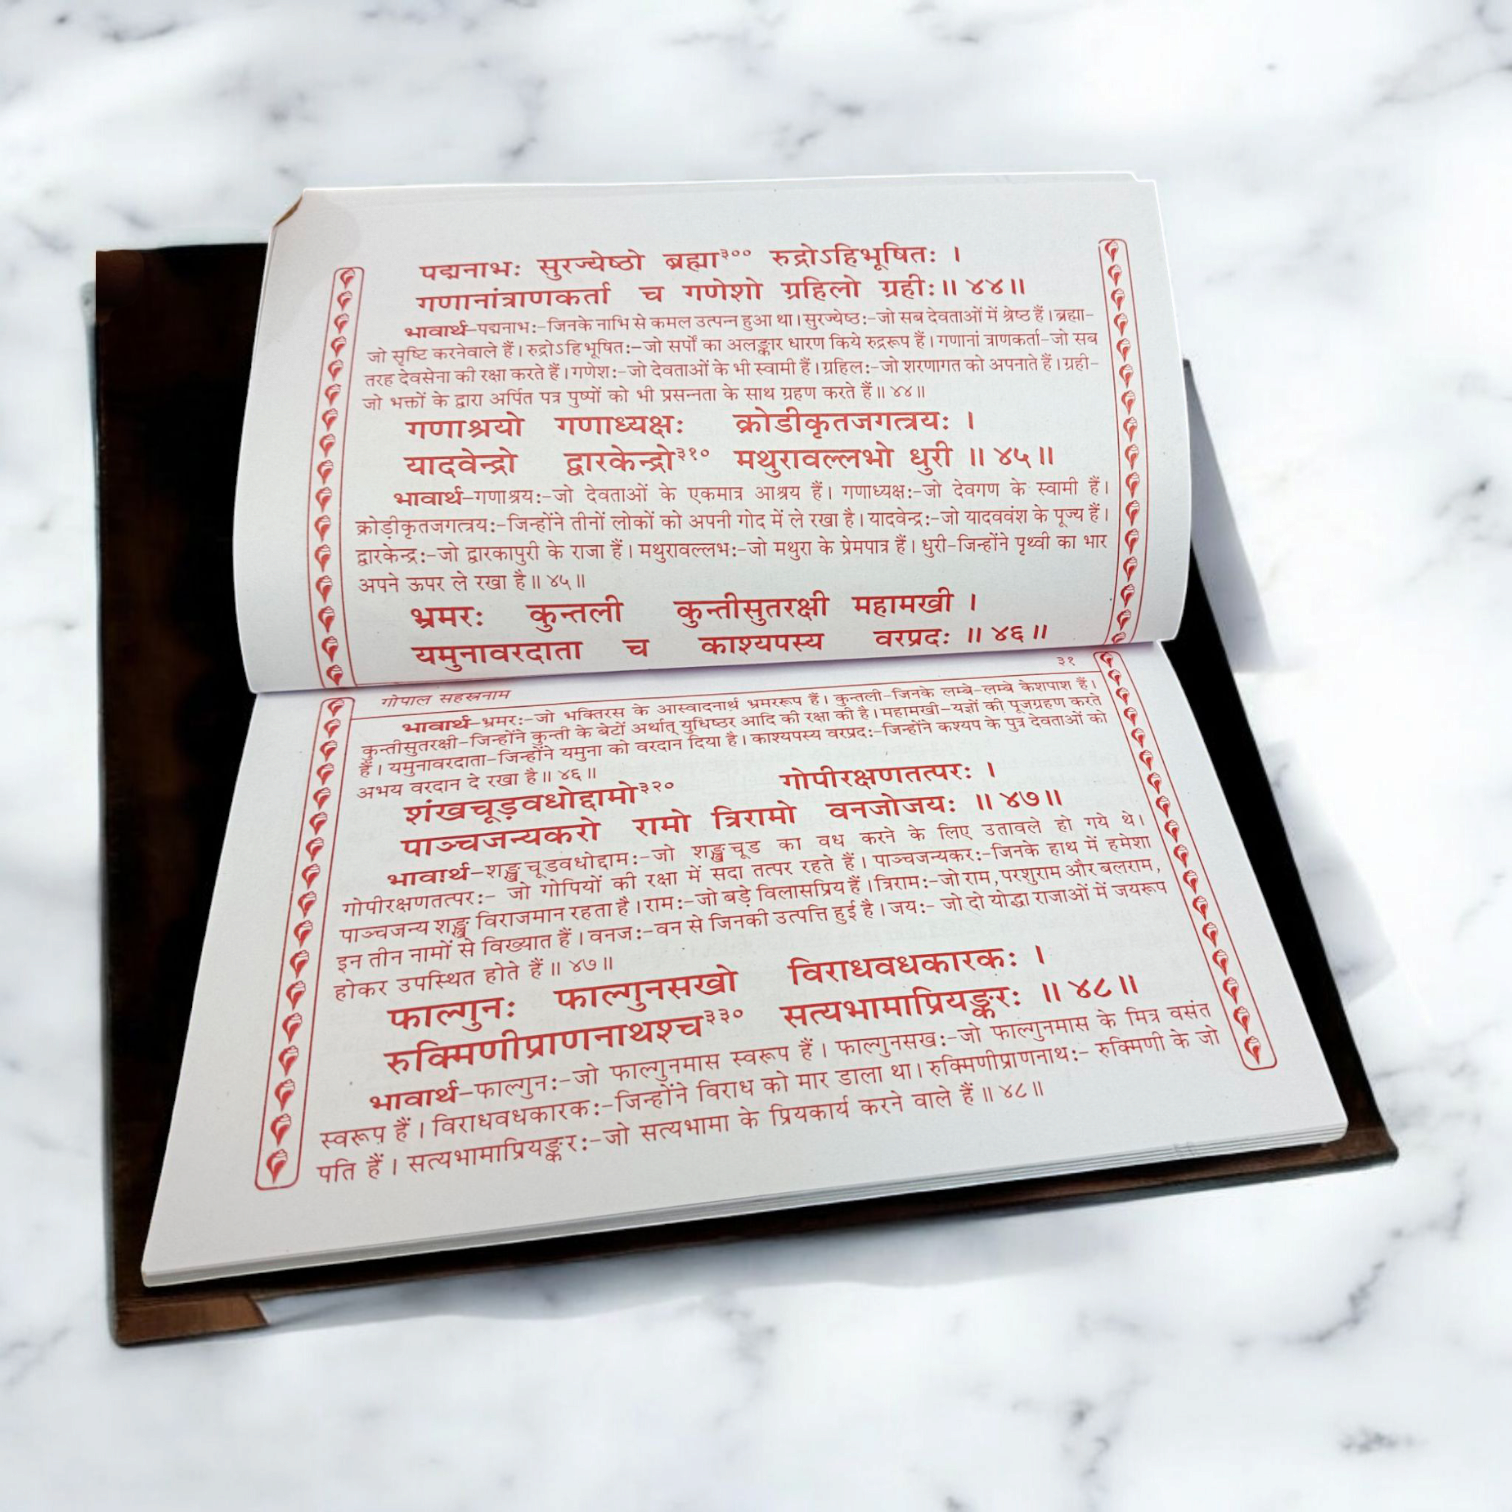 पद्मनाभः सुरज्येष्ठो ब्रह्मा³⁰⁰ रुद्रोऽहिभूषितः ।
गणानांत्राणकर्ता च गणेशो ग्रहिलो ग्रहीः॥ ४४॥
भावार्थ–पद्मनाभः–जिनके नाभि से कमल उत्पन्न हुआ था। सुरज्येष्ठः–जो सब देवताओं में श्रेष्ठ हैं। ब्रह्मा–
जो सृष्टि करनेवाले हैं। रुद्रोऽहिभूषितः–जो सर्पों का अलङ्कार धारण किये रुद्ररूप हैं। गणानां त्राणकर्ता–जो सब
तरह देवसेना की रक्षा करते हैं। गणेशः–जो देवताओं के भी स्वामी हैं। ग्रहिलः–जो शरणागत को अपनाते हैं। ग्रही–
जो भक्तों के द्वारा अर्पित पत्र पुष्पों को भी प्रसन्नता के साथ ग्रहण करते हैं॥ ४४॥
गणाश्रयो गणाध्यक्षः क्रोडीकृतजगत्त्रयः ।
यादवेन्द्रो द्वारकेन्द्रो³¹⁰ मथुरावल्लभो धुरी ॥ ४५॥
भावार्थ–गणाश्रयः–जो देवताओं के एकमात्र आश्रय हैं। गणाध्यक्षः–जो देवगण के स्वामी हैं।
क्रोडीकृतजगत्त्रयः–जिन्होंने तीनों लोकों को अपनी गोद में ले रखा है। यादवेन्द्रः–जो यादववंश के पूज्य हैं।
द्वारकेन्द्रः–जो द्वारकापुरी के राजा हैं। मथुरावल्लभः–जो मथुरा के प्रेमपात्र हैं। धुरी–जिन्होंने पृथ्वी का भार
अपने ऊपर ले रखा है॥ ४५॥
भ्रमरः कुन्तली कुन्तीसुतरक्षी महामखी ।
यमुनावरदाता च काश्यपस्य वरप्रदः ॥ ४६॥
गोपाल सहस्रनाम ३१
भावार्थ–भ्रमरः–जो भक्तिरस के आस्वादनार्थ भ्रमररूप हैं। कुन्तली–जिनके लम्बे–लम्बे केशपाश हैं।
कुन्तीसुतरक्षी–जिन्होंने कुन्ती के बेटों अर्थात् युधिष्ठर आदि की रक्षा की है। महामखी–यज्ञों की पूजग्रहण करते
हैं। यमुनावरदाता–जिन्होंने यमुना को वरदान दिया है। काश्यपस्य वरप्रदः–जिन्होंने कश्यप के पुत्र देवताओं को
अभय वरदान दे रखा है॥ ४६॥
शंखचूड़वधोद्दामो³²⁰ गोपीरक्षणतत्परः ।
पाञ्चजन्यकरो रामो त्रिरामो वनजोजयः ॥ ४७॥
भावार्थ–शङ्खचूडवधोद्दामः–जो शङ्खचूड का वध करने के लिए उतावले हो गये थे।
गोपीरक्षणतत्परः– जो गोपियों की रक्षा में सदा तत्पर रहते हैं। पाञ्चजन्यकरः–जिनके हाथ में हमेशा
पाञ्चजन्य शङ्ख विराजमान रहता है। रामः–जो बड़े विलासप्रिय हैं। त्रिरामः–जो राम, परशुराम और बलराम,
इन तीन नामों से विख्यात हैं। वनजः–वन से जिनकी उत्पत्ति हुई है। जयः– जो दो योद्धा राजाओं में जयरूप
होकर उपस्थित होते हैं॥ ४७॥
फाल्गुनः फाल्गुनसखो विराधवधकारकः ।
रुक्मिणीप्राणनाथश्च³³⁰ सत्यभामाप्रियङ्करः ॥ ४८॥
भावार्थ–फाल्गुनः–जो फाल्गुनमास स्वरूप हैं। फाल्गुनसखः–जो फाल्गुनमास के मित्र वसंत
स्वरूप हैं। विराधवधकारकः–जिन्होंने विराध को मार डाला था। रुक्मिणीप्राणनाथः– रुक्मिणी के जो
पति हैं। सत्यभामाप्रियङ्करः–जो सत्यभामा के प्रियकार्य करने वाले हैं॥ ४८॥